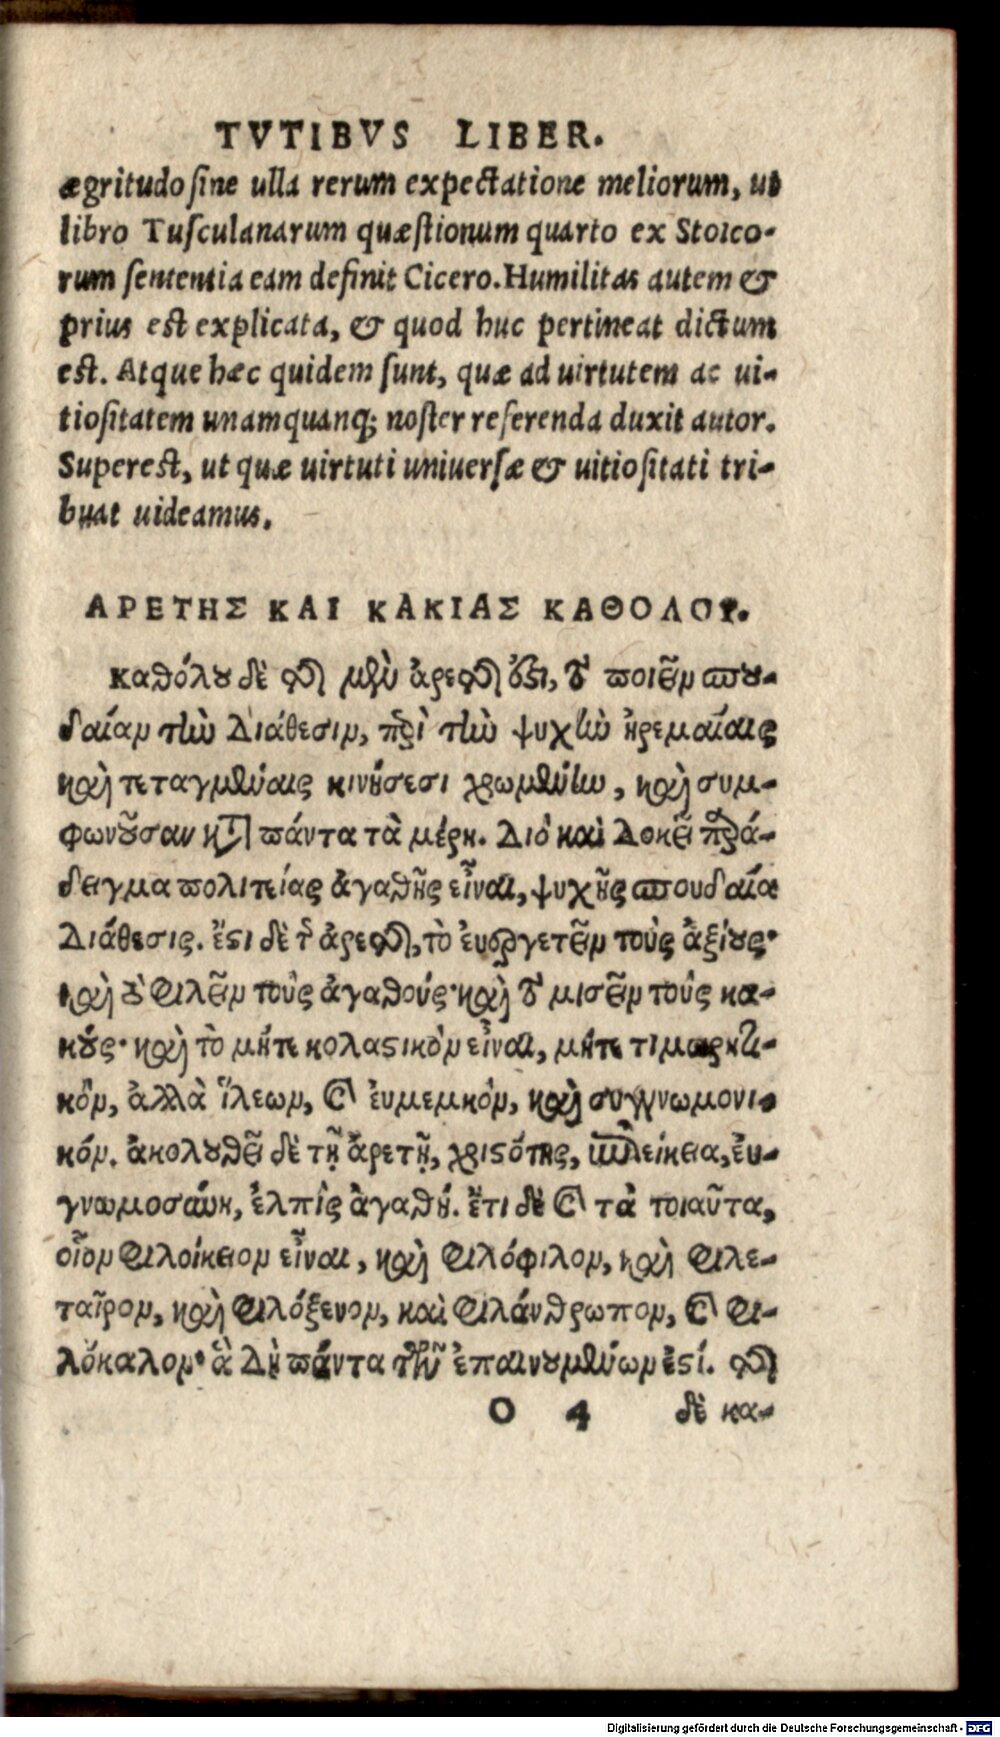 TVTIBVS LIBER.
ægritudo sine ulla rerum expectatione meliorum, ut
libro Tusculanarum quæstionum quarto ex Stoico-
rum sententia eam definit Cicero. Humilitas autem &
prius est explicata, & quod huc pertineat dictum
est. Atque hæc quidem sunt, quæ ad uirtutem ac ui-
tiositatem unamquanq; noster referenda duxit autor.
Superest, ut quæ uirtuti uniuersæ & uitiositati tri-
buat uideamus.
ΑΡΕΤΗΣ ΚΑΙ ΚΑΚΙΑΣ ΚΑΘΟΛΟΥ.
καθόλου δὲ τῆς μὲν ἀρετῆς ἐστι, τὸ ποιεῖν σπου-
δαίαν τὴν διάθεσιν, περὶ τὴν ψυχὴν ἠρεμαίαις
καὶ τεταγμέναις κινήσεσι χρωμένην, καὶ συμ-
φωνοῦσαν κατὰ πάντα τὰ μέρη. Διὸ καὶ δοκεῖ παρά-
δειγμα πολιτείας ἀγαθῆς εἶναι, ψυχῆς σπουδαία
διάθεσις. ἔστι δὲ τῆς ἀρετῆς, τὸ ἐυεργετεῖν τοὺς ἀξίους·
καὶ τὸ φιλεῖν τοὺς ἀγαθούς· καὶ τὸ μισεῖν τοὺς κα-
κούς· καὶ τὸ μήτε κολαστικὸν εἶναι, μήτε τιμωρητι-
κὸν, ἀλλὰ ἵλεων, καὶ ἐυμενικὸν, καὶ συγγνωμονι-
κόν. ἀκολουθεῖ δὲ τῇ ἀρετῇ, χρηστότης, ἐπιείκεια, ἐυ-
γνωμοσύνη, ἐλπὶς ἀγαθή. ἔτι δὲ καὶ τὰ τοιαῦτα,
οἷον φιλοίκειον εἶναι, καὶ φιλόφιλον, καὶ φιλε-
ταῖρον, καὶ φιλόξενον, καὶ φιλάνθρωπον, καὶ φι-
λόκαλον· ἃ δὴ πάντα τῶν ἐπαινουμένων ἐστί. τῆς
O 4 δὲ κα-
Digitalisierung gefördert durch die Deutsche Forschungsgemeinschaft - DFG